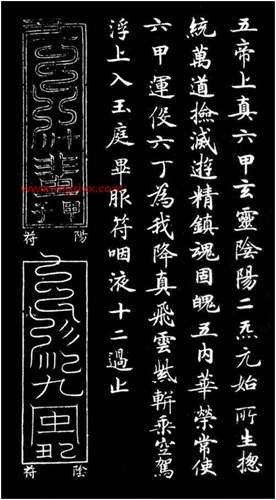 五帝上真六甲玄靈陰陽二炁元始所生揔
統萬道撿滅遊精鎮魂固魄五内華榮常使
六甲運役六丁為我降真飛雲紫軿乗空駕
浮上入玉庭畢服符咽液十二過止
陽符
陰符